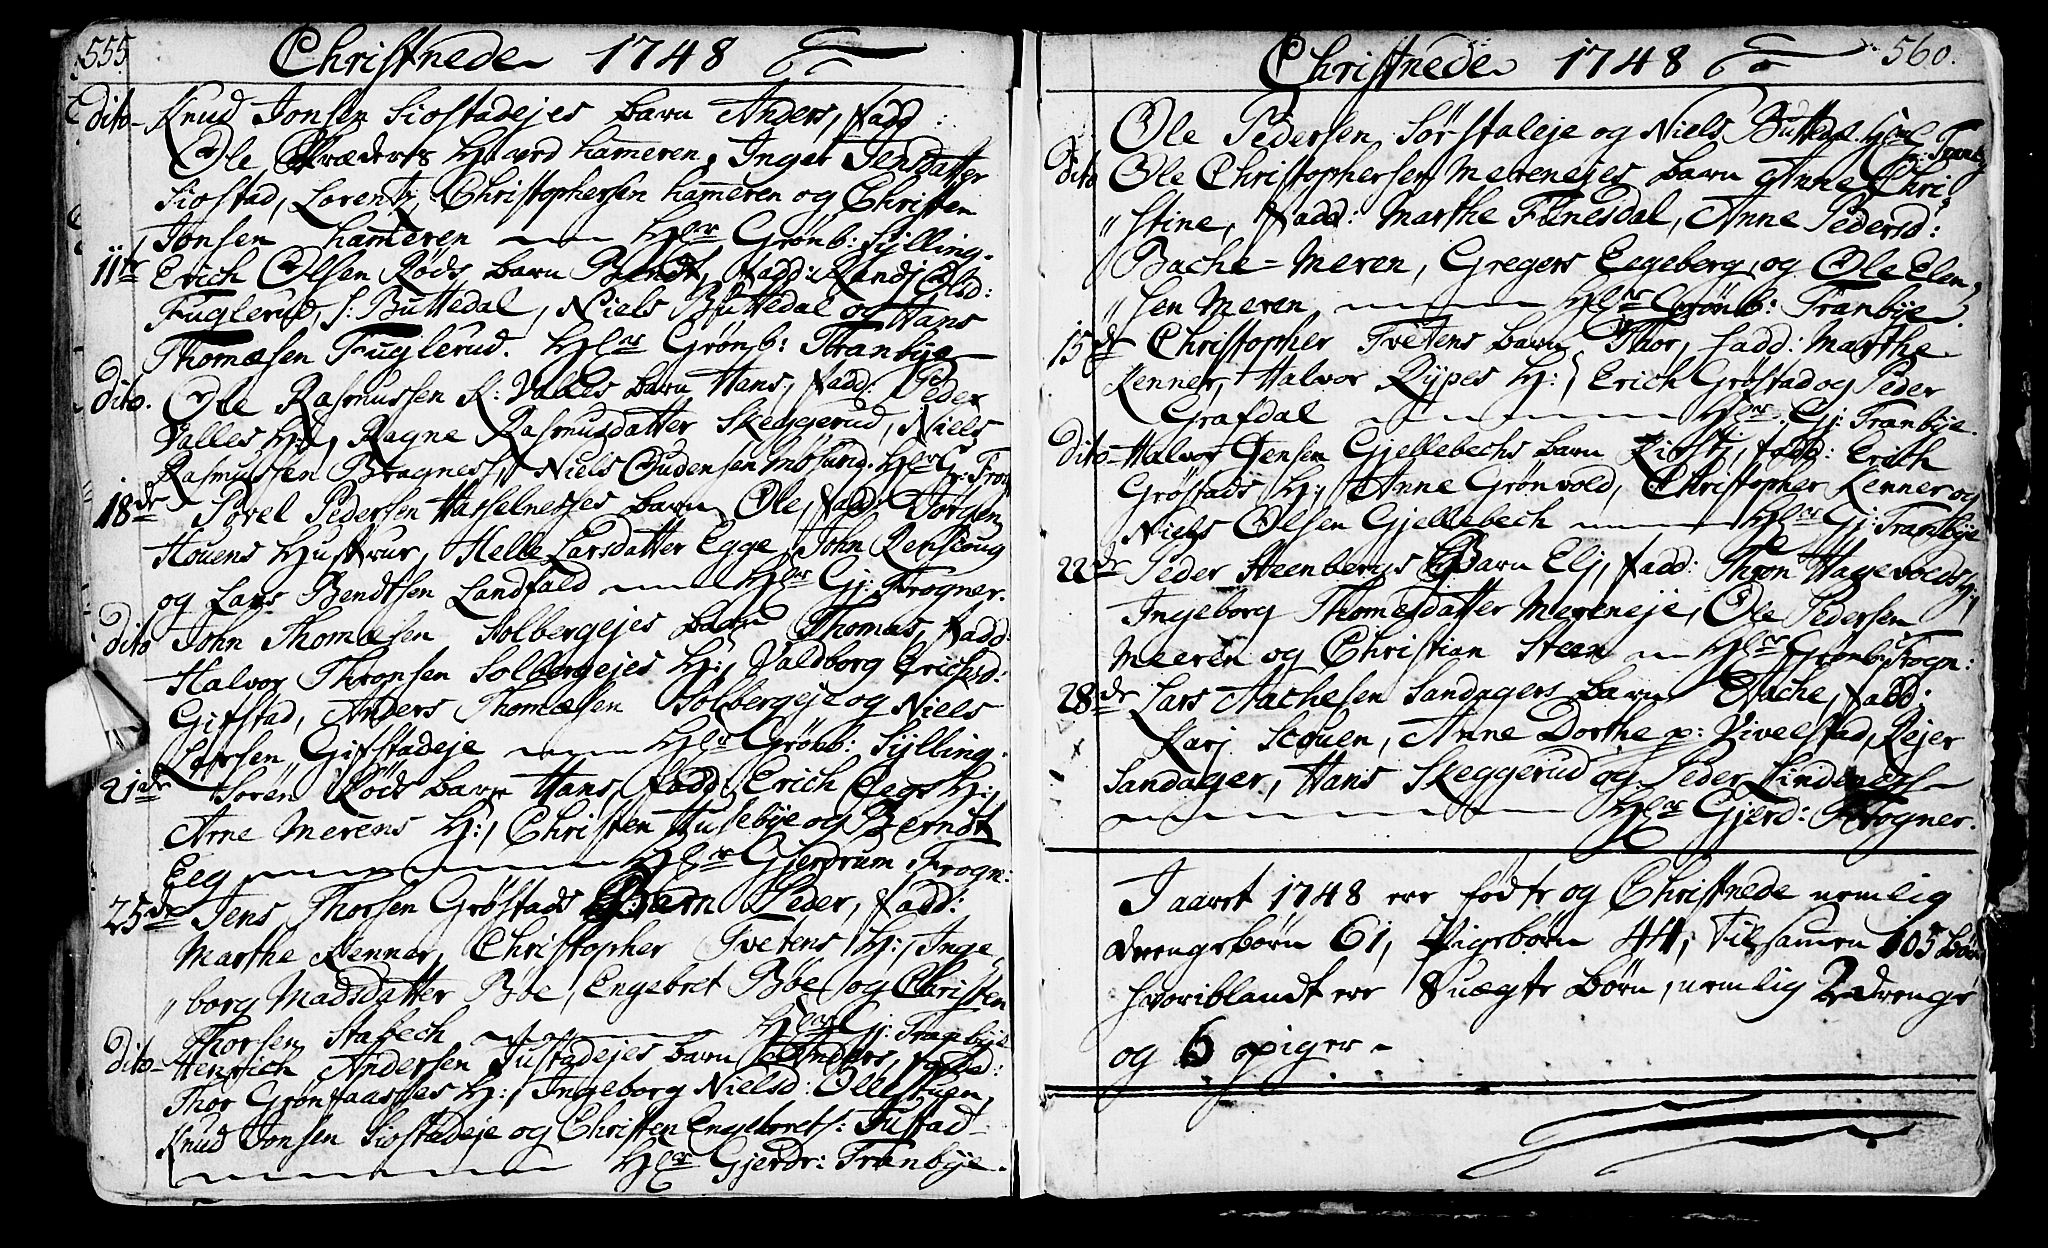 555. Christnede 1748
dito- Knud Jonsen Siostadejes barn Anders, fadd:
Ole Skræders H: ved hameren, Inger Jensdatter
Siostad, Lorentz Christophersen hameren og Christen
Jonsen hameren Hlr Grønb: Sylling.
11te Erich Olsen Røds barn Bendt, fadd: Randj Olsd:
Fuglerud, S: Buttedal, Niels Buttedal og Hans
Thomæsen Fuglerud. Hlr Grønb: Tranbye
dito. Ole Rasmussen R: Valles barn Hans, fadd: Peder
Valles H:, Ragne Rasmusdatter Skeggerud, Niels
Rasmussen Bragness, Niels Gudensen Hlr G: Frog
18de Povel Pedersen Hasselnesses barn Ole, fadd: Jørgen
Houens Hustrue, Helle Larsdatter Egge, John Renscoug
og Lars Bendtsen Landfald Hlr Gj: Frogner.
dito John Thomæsen Solbergejes barn Thomas, fadd:
Halvor Thronsen Solbergejes H:, Valdborg Erichsd:
Gifstad, Anders Thomæsen Solbergeje og Niels
Larsen Gifstadeje Hlr Grønb: Sylling.
21de Søren Røds barn Hans, fadd: Erich Eegs H:,
Arne Merens H:, Christen Husebye og Berndt
Eeg Hlr Gjerdrum Frogn:
25de Jens Thorsen Grøstads Barn Peder, fadd:
Marthe Kenner, Christopher Tvetens H:, Inge-
"borg Madsdatter Bøe, Engebret Bøe og Christen
Thorsen Stabech Hlr Gj: Tranbye
dito- Henrich Andersen Justadejes barn Anders, fadd:
Thor Grønsaasses H:, Ingeborg Nielsd: Ollestuen,
Knud Jonsen Siostadeje og Christen Engebrets: Justad
Hlr Gjerdr: Tranbye.
Christnede 1748 560.
Ole Pedersen Sørstaleje og Niels Buttedal. Hlr
Gr: Tranb
dito Ole Christophersen Merenejes barn Anne Chri-
"stine, fadd: Marthe Fenesdal, Anne Pedersd:
Bache-Meren, Gregers Eegeberg, og Ole Elen-
"sen Meren Hlr Grønb: Tranbye.
15de Christopher Tvetens barn Thor, fadd: Marthe
Kenner, Halvor Rypes H:, Erich Grøstad og Peder
Grafdal Hlr Gj: Tranbye.
dito- Halvor Jensen Gjellebechs barn Kirstj, fadd: Erich
Grøstads H:, Anne Grønvold, Christopher Kenner og
Niels Olsen Gjellebech Hlr Gj: Tranbye
22de Peder Steenbergs Barn Elj, fadd: Thron Hagevolds H:,
Ingeborg Thomesdatter Mereneje, Ole Pedersen
Meeren og Christian Steen Hlr Grønb: Frogn:
28de Lars Aachesen Sandagers barn Aache, fadd:
Karj Scouen, Anne Dorthe p: Vivelstad, Rejer
Sandager, Hans Skeggerud og Peder Lindeness
Hlr Gjerd: Frogner.
I aaret 1748 ere fødte og Christnede nemlig
drengebørn 61, Pigebørn 44, Tilsamen 105 Børn
hvoriblandt ere 8 uægte børn, nemlig 2 drenge
og 6 piger-